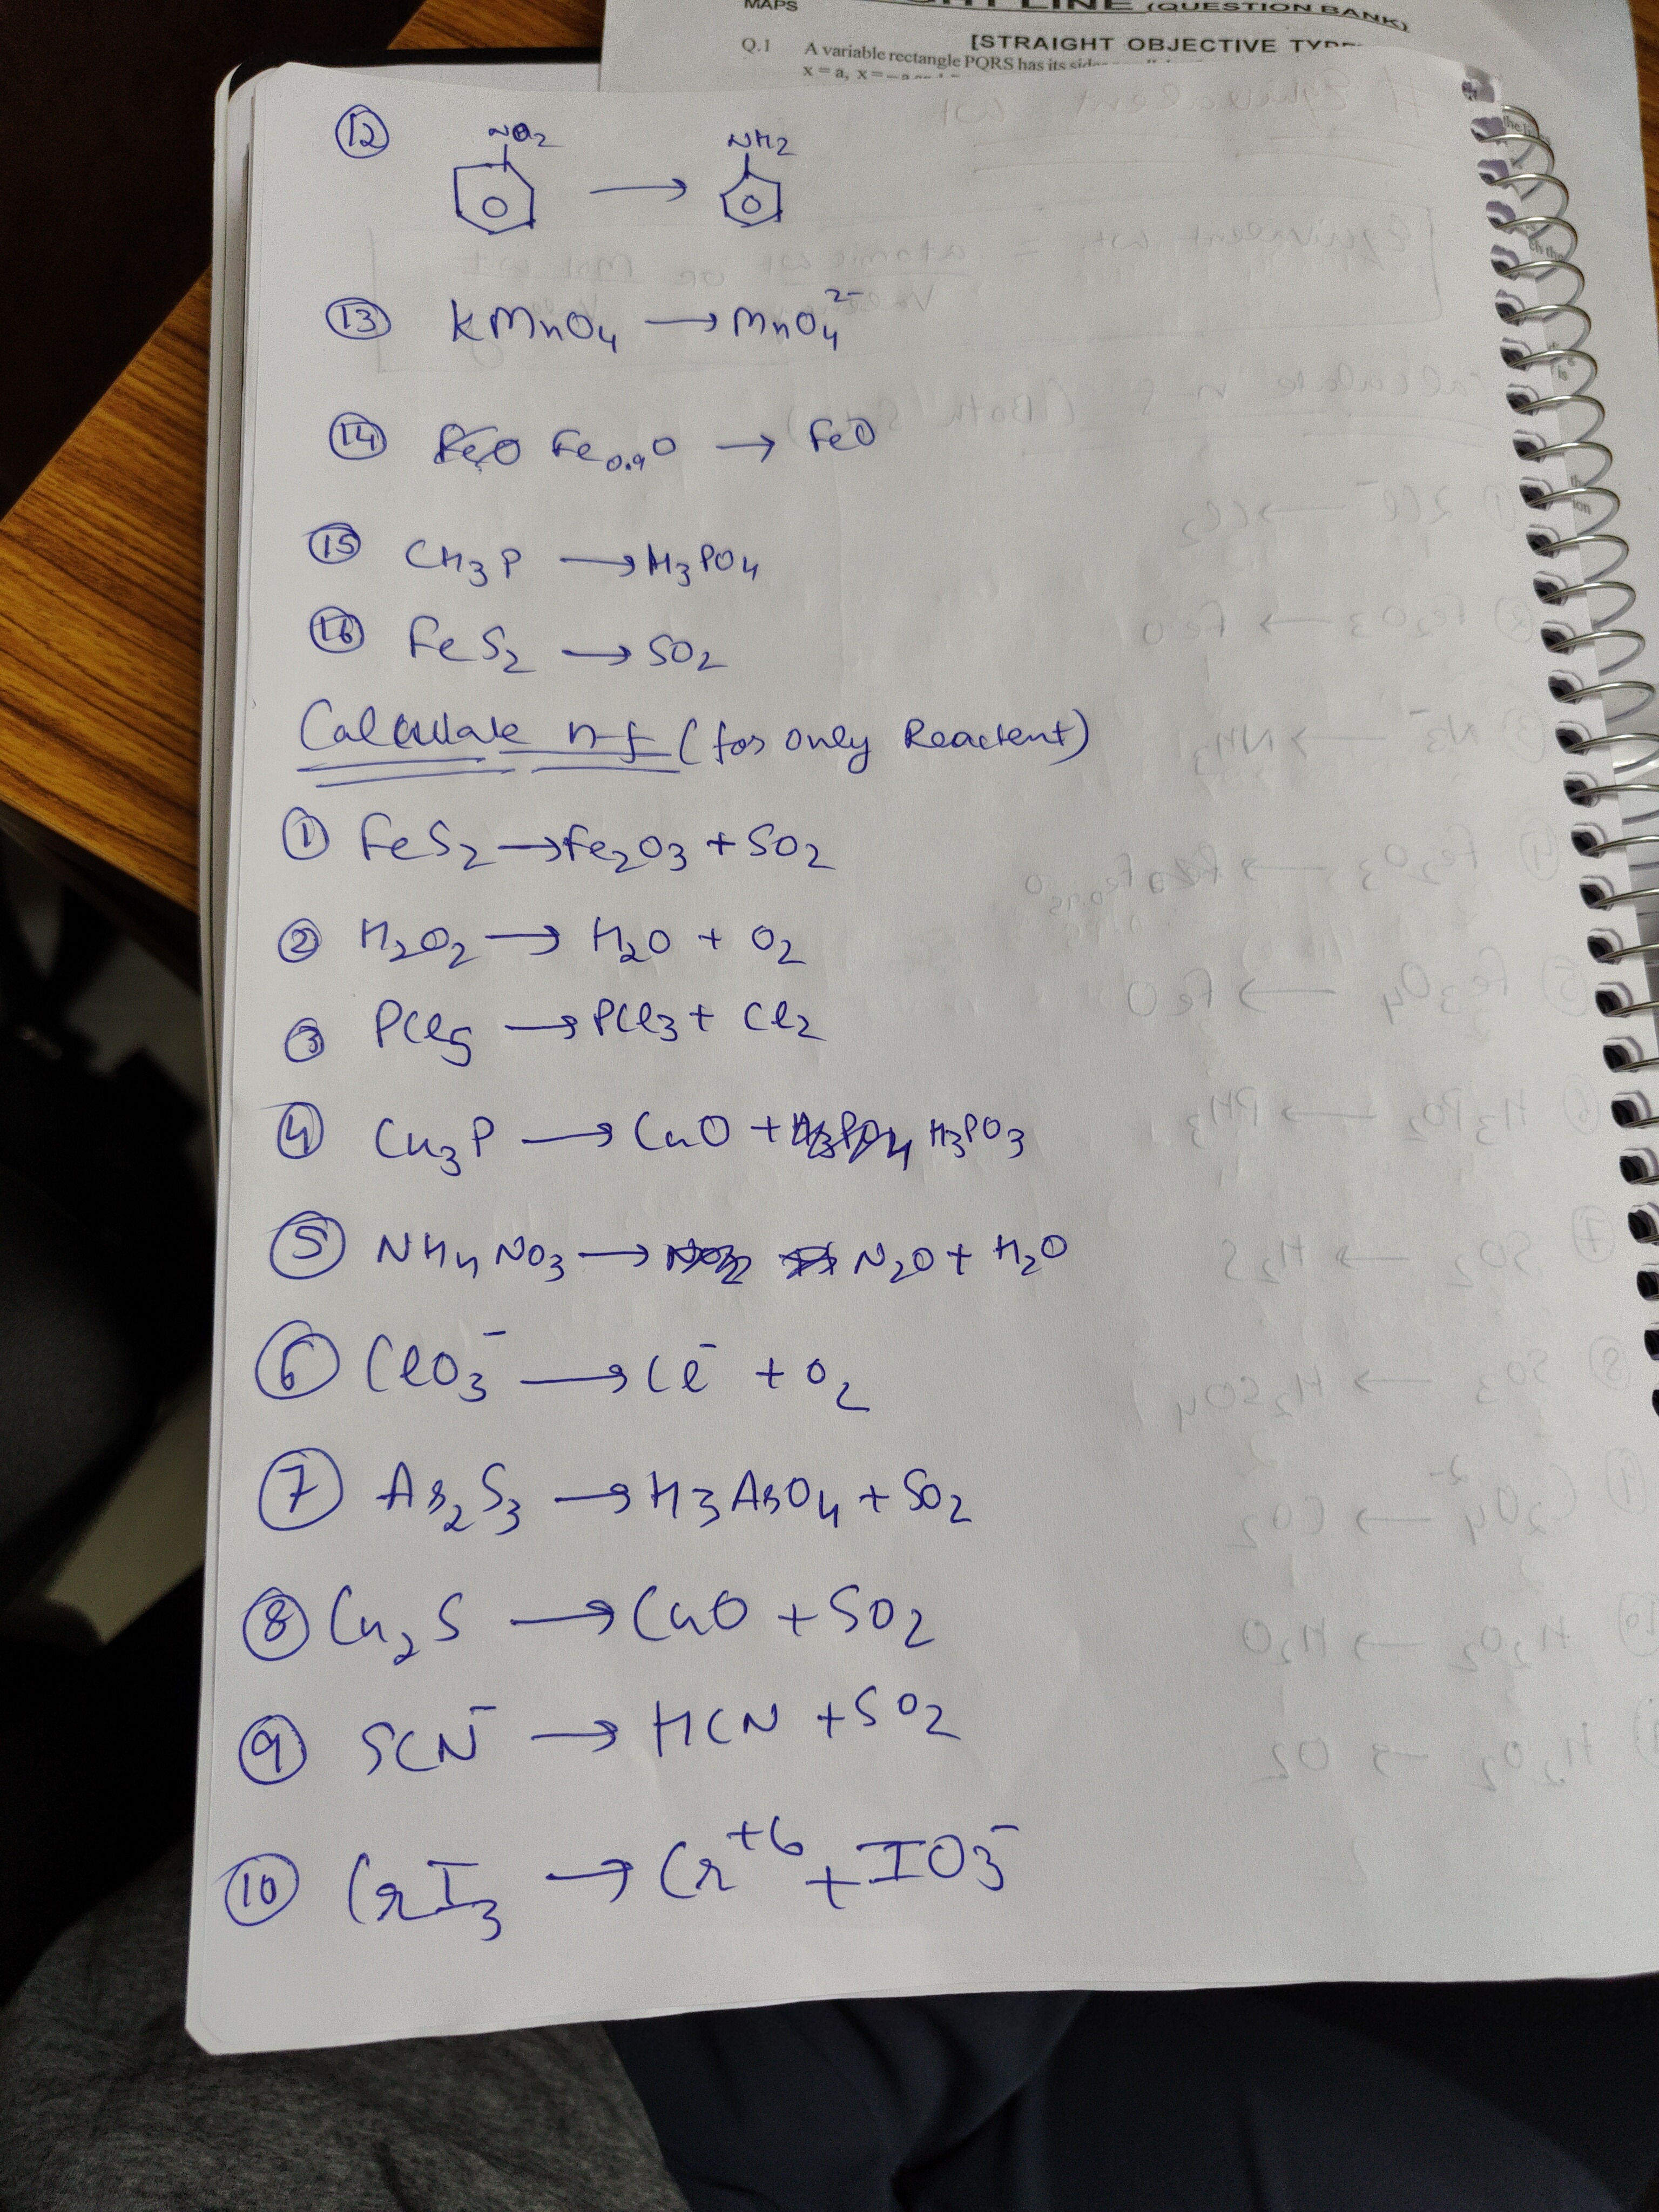 MAPS
LINE (QUESTION BANK)
[STRAIGHT OBJECTIVE
Q.1 A variable rectangle PQRS has its
x = a, x = – a
⑫ NO₂ → NH₂
⑬ KMnO₄ → MnO₄²⁻
⑭ Fe₀.₉O → FeO
⑮ CH₃P → H₃PO₄
⑯ FeS₂ → SO₂
Calculate n-f (for only Reactent)
① FeS₂ → Fe₂O₃ + SO₂
② H₂O₂ → H₂O + O₂
③ PCl₅ → PCl₃ + Cl₂
④ Cu₃P → CuO + H₃PO₄ H₃PO₃
⑤ NH₄NO₃ → N₂O + H₂O
⑥ ClO₃⁻ → Cl⁻ + O₂
⑦ As₂S₃ → H₃AsO₄ + SO₂
⑧ Cu₂S → CuO + SO₂
⑨ SCN⁻ → HCN + SO₂
⑩ CrI₃ → Cr⁺⁶ + IO₃⁻